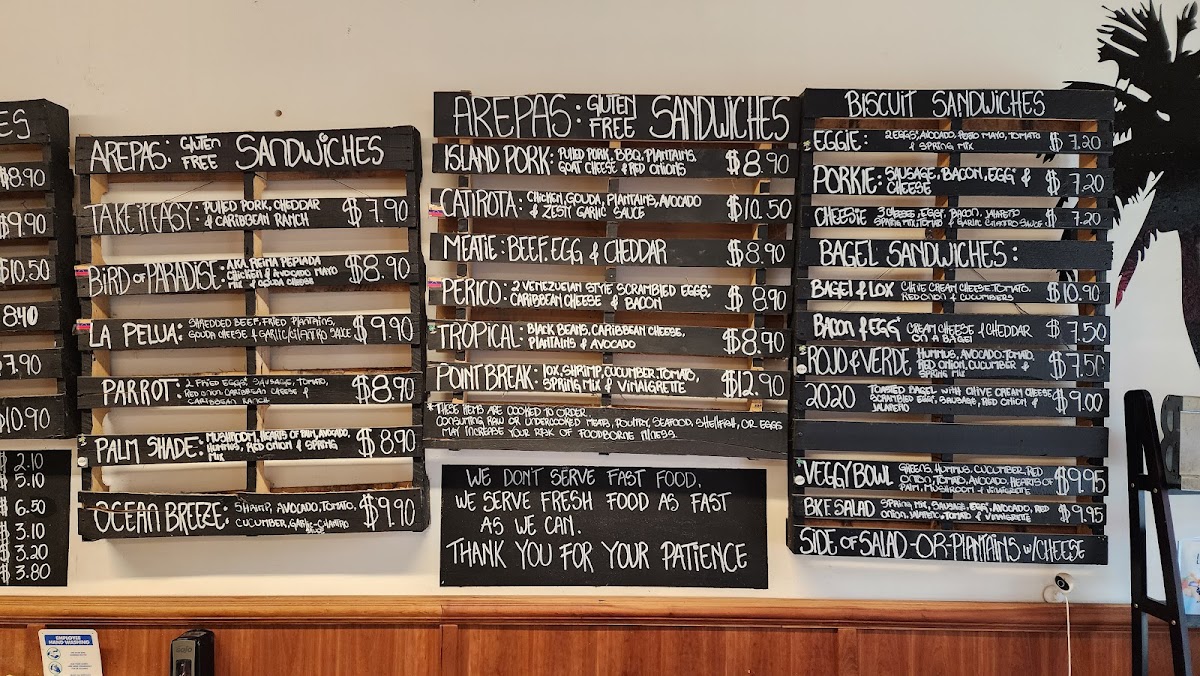 ES
$8.90
$9.90
$10.50
8.40
$7.90
$10.90
$2.10
$5.10
$6.50
$3.10
$3.20
$3.80
AREPAS: GLUTEN FREE SANDWICHES
TAKE IT EASY: PULLED PORK, CHEDDAR $7.90
& CARIBBEAN RANCH
BIRD OF PARADISE: A.K.A. REINA PEPIADA $8.90
CHICKEN & AVOCADO MAYO
MIX & GOUDA CHEESE
LA PELUA: SHREDDED BEEF, FRIED PLANTAINS, $9.90
GOUDA CHEESE & GARLIC/CILANTRO SAUCE
PARROT: 2 FRIED EGGS* SAUSAGE, TOMATO, $8.90
RED ONION CARIBBEAN CHEESE &
CARIBBEAN RANCH
PALM SHADE: MUSHROOM, HEARTS OF PALM, AVOCADO, $8.90
HUMMUS, RED ONION & SPRING
MIX
OCEAN BREEZE: SHRIMP, AVOCADO, TOMATO, $9.90
CUCUMBER, GARLIC-CILANTRO
SAUCE
AREPAS: GLUTEN FREE SANDWICHES
ISLAND PORK: PULLED PORK, BBQ, PLANTAINS, $8.90
GOAT CHEESE & RED ONIONS
CATIROTA: CHICKEN, GOUDA, PLANTAINS, AVOCADO $10.50
& ZESTY GARLIC SAUCE
MEATIE: BEEF, EGG & CHEDDAR $8.90
PERICO: 2 VENEZUELAN STYLE SCRAMBLED EGGS*, $8.90
CARIBBEAN CHEESE & BACON
TROPICAL: BLACK BEANS, CARIBBEAN CHEESE, $8.90
PLANTAINS & AVOCADO
POINT BREAK: LOX, SHRIMP, CUCUMBER, TOMATO, $12.90
SPRING MIX & VINAIGRETTE
*THESE ITEMS ARE COOKED TO ORDER.
CONSUMING RAW OR UNDERCOOKED MEATS, POULTRY, SEAFOOD, SHELLFISH, OR EGGS
MAY INCREASE YOUR RISK OF FOODBORNE ILLNESS.
WE DON'T SERVE FAST FOOD.
WE SERVE FRESH FOOD AS FAST
AS WE CAN.
THANK YOU FOR YOUR PATIENCE
BISCUIT SANDWICHES
EGGIE: 2 EGGS*, AVOCADO, PESTO MAYO, TOMATO $7.20
& SPRING MIX
PORKIE: SAUSAGE, BACON, EGG* & $7.20
CHEESE
CHEESIE 3 CHEESES, EGGS*, BACON, JALAPEÑO $7.20
SPRING MIX, TOMATO & GARLIC CILANTRO SAUCE
BAGEL SANDWICHES:
BAGEL & LOX CHIVE CREAM CHEESE, TOMATO, $10.90
RED ONION & CUCUMBERS
BACON & EGG* CREAM CHEESE & CHEDDAR $7.50
ON A BAGEL
ROJO & VERDE HUMMUS, AVOCADO, TOMATO, $7.50
RED ONION, CUCUMBER &
SPRING MIX
2020 TOASTED BAGEL WITH CHIVE CREAM CHEESE $9.00
SCRAMBLED EGGS, SAUSAGE, RED ONION &
JALAPEÑO
VEGGY BOWL GREENS, HUMMUS, CUCUMBER, RED $9.95
ONION, TOMATO, AVOCADO, HEARTS OF
PALM, MUSHROOM & VINAIGRETTE
BKF SALAD SPRING MIX, SAUSAGE, EGG*, AVOCADO, RED $9.95
ONION, JALAPEÑO, TOMATO & VINAIGRETTE
SIDE OF SALAD -OR- PLANTAINS W/CHEESE
EMPLOYEE
HAND WASHING